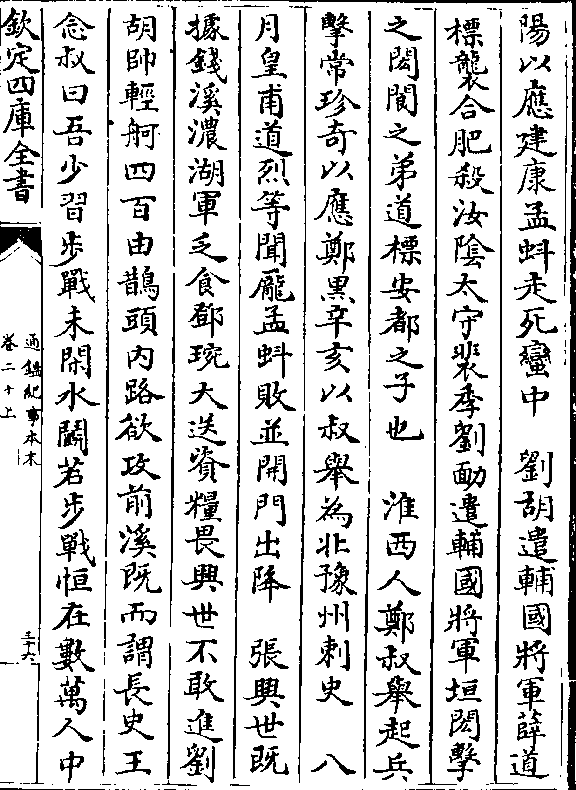 陽以應建康孟蚪走死蠻中　劉胡遣輔國將軍薛道
標襲合肥殺汝陰太守裴季劉勔遣輔國將軍垣閎擊
之閎閬之弟道標安都之子也　淮西人鄭叔舉起兵
擊常珍奇以應鄭黑辛亥以叔舉為北豫州刺史　八
月皇甫道烈等聞龎孟蚪敗並開門出降　張興世既
據錢溪濃湖軍乏食鄧琬大送資糧畏興世不敢進劉
胡帥輕舸四百由鵲頭内路欲攻前溪既而謂長史王
念叔曰吾少習步戰未閑水鬭若步戰恒在數萬人中
欽定四庫全書
通鑑紀事本末
卷二十上
三十六